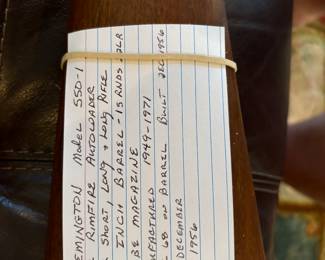 EMINGTON MODEL 550-1
RIMFIRE AUTOLOADER
SHORT, LONG & LONG RIFLE
INCH BARREL - 15 RNDS
BE MAGAZINE
UFACTURED 1949-1971
68 ON BARREL BUILT DEC 1956
DECEMBER
1956